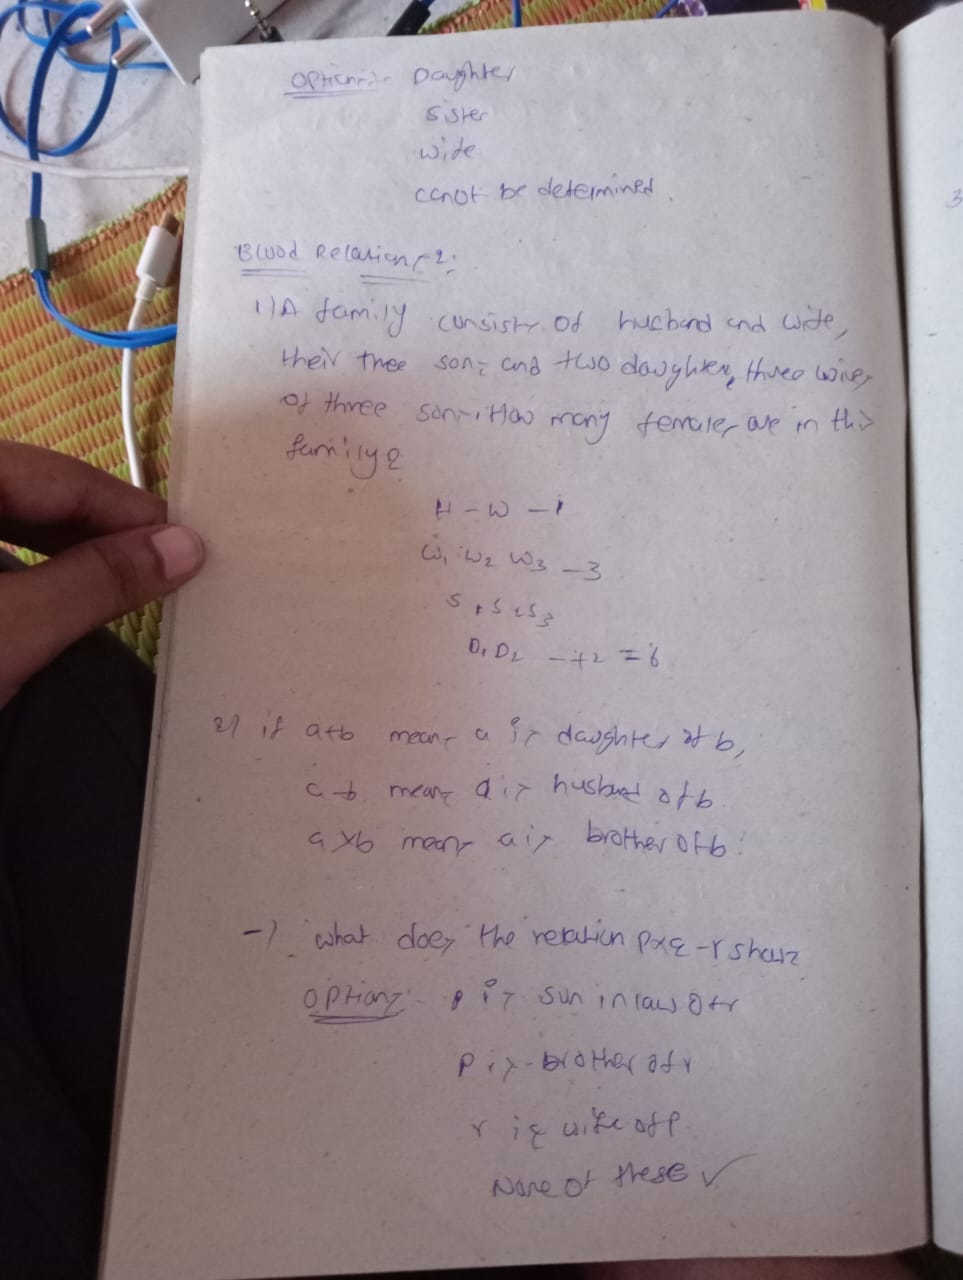 Options:- Daughter
sister
wife
cannot be determined.
Blood Relations-2:
1) A family consists of husband and wife,
their three sons and two daughters, three wives
of three sons. How many females are in this
family?
H - W - 1
W1 W2 W3 - 3
S1 S2 S3
D1 D2 - +2 = 6
2) if a+b means a is daughter of b,
a-b means a is husband of b.
axb means a is brother of b.
-) what does the relation pxq-r
Options:- p is sun in law of r
p is brother of r
r is wife of p
None of these ✓
3